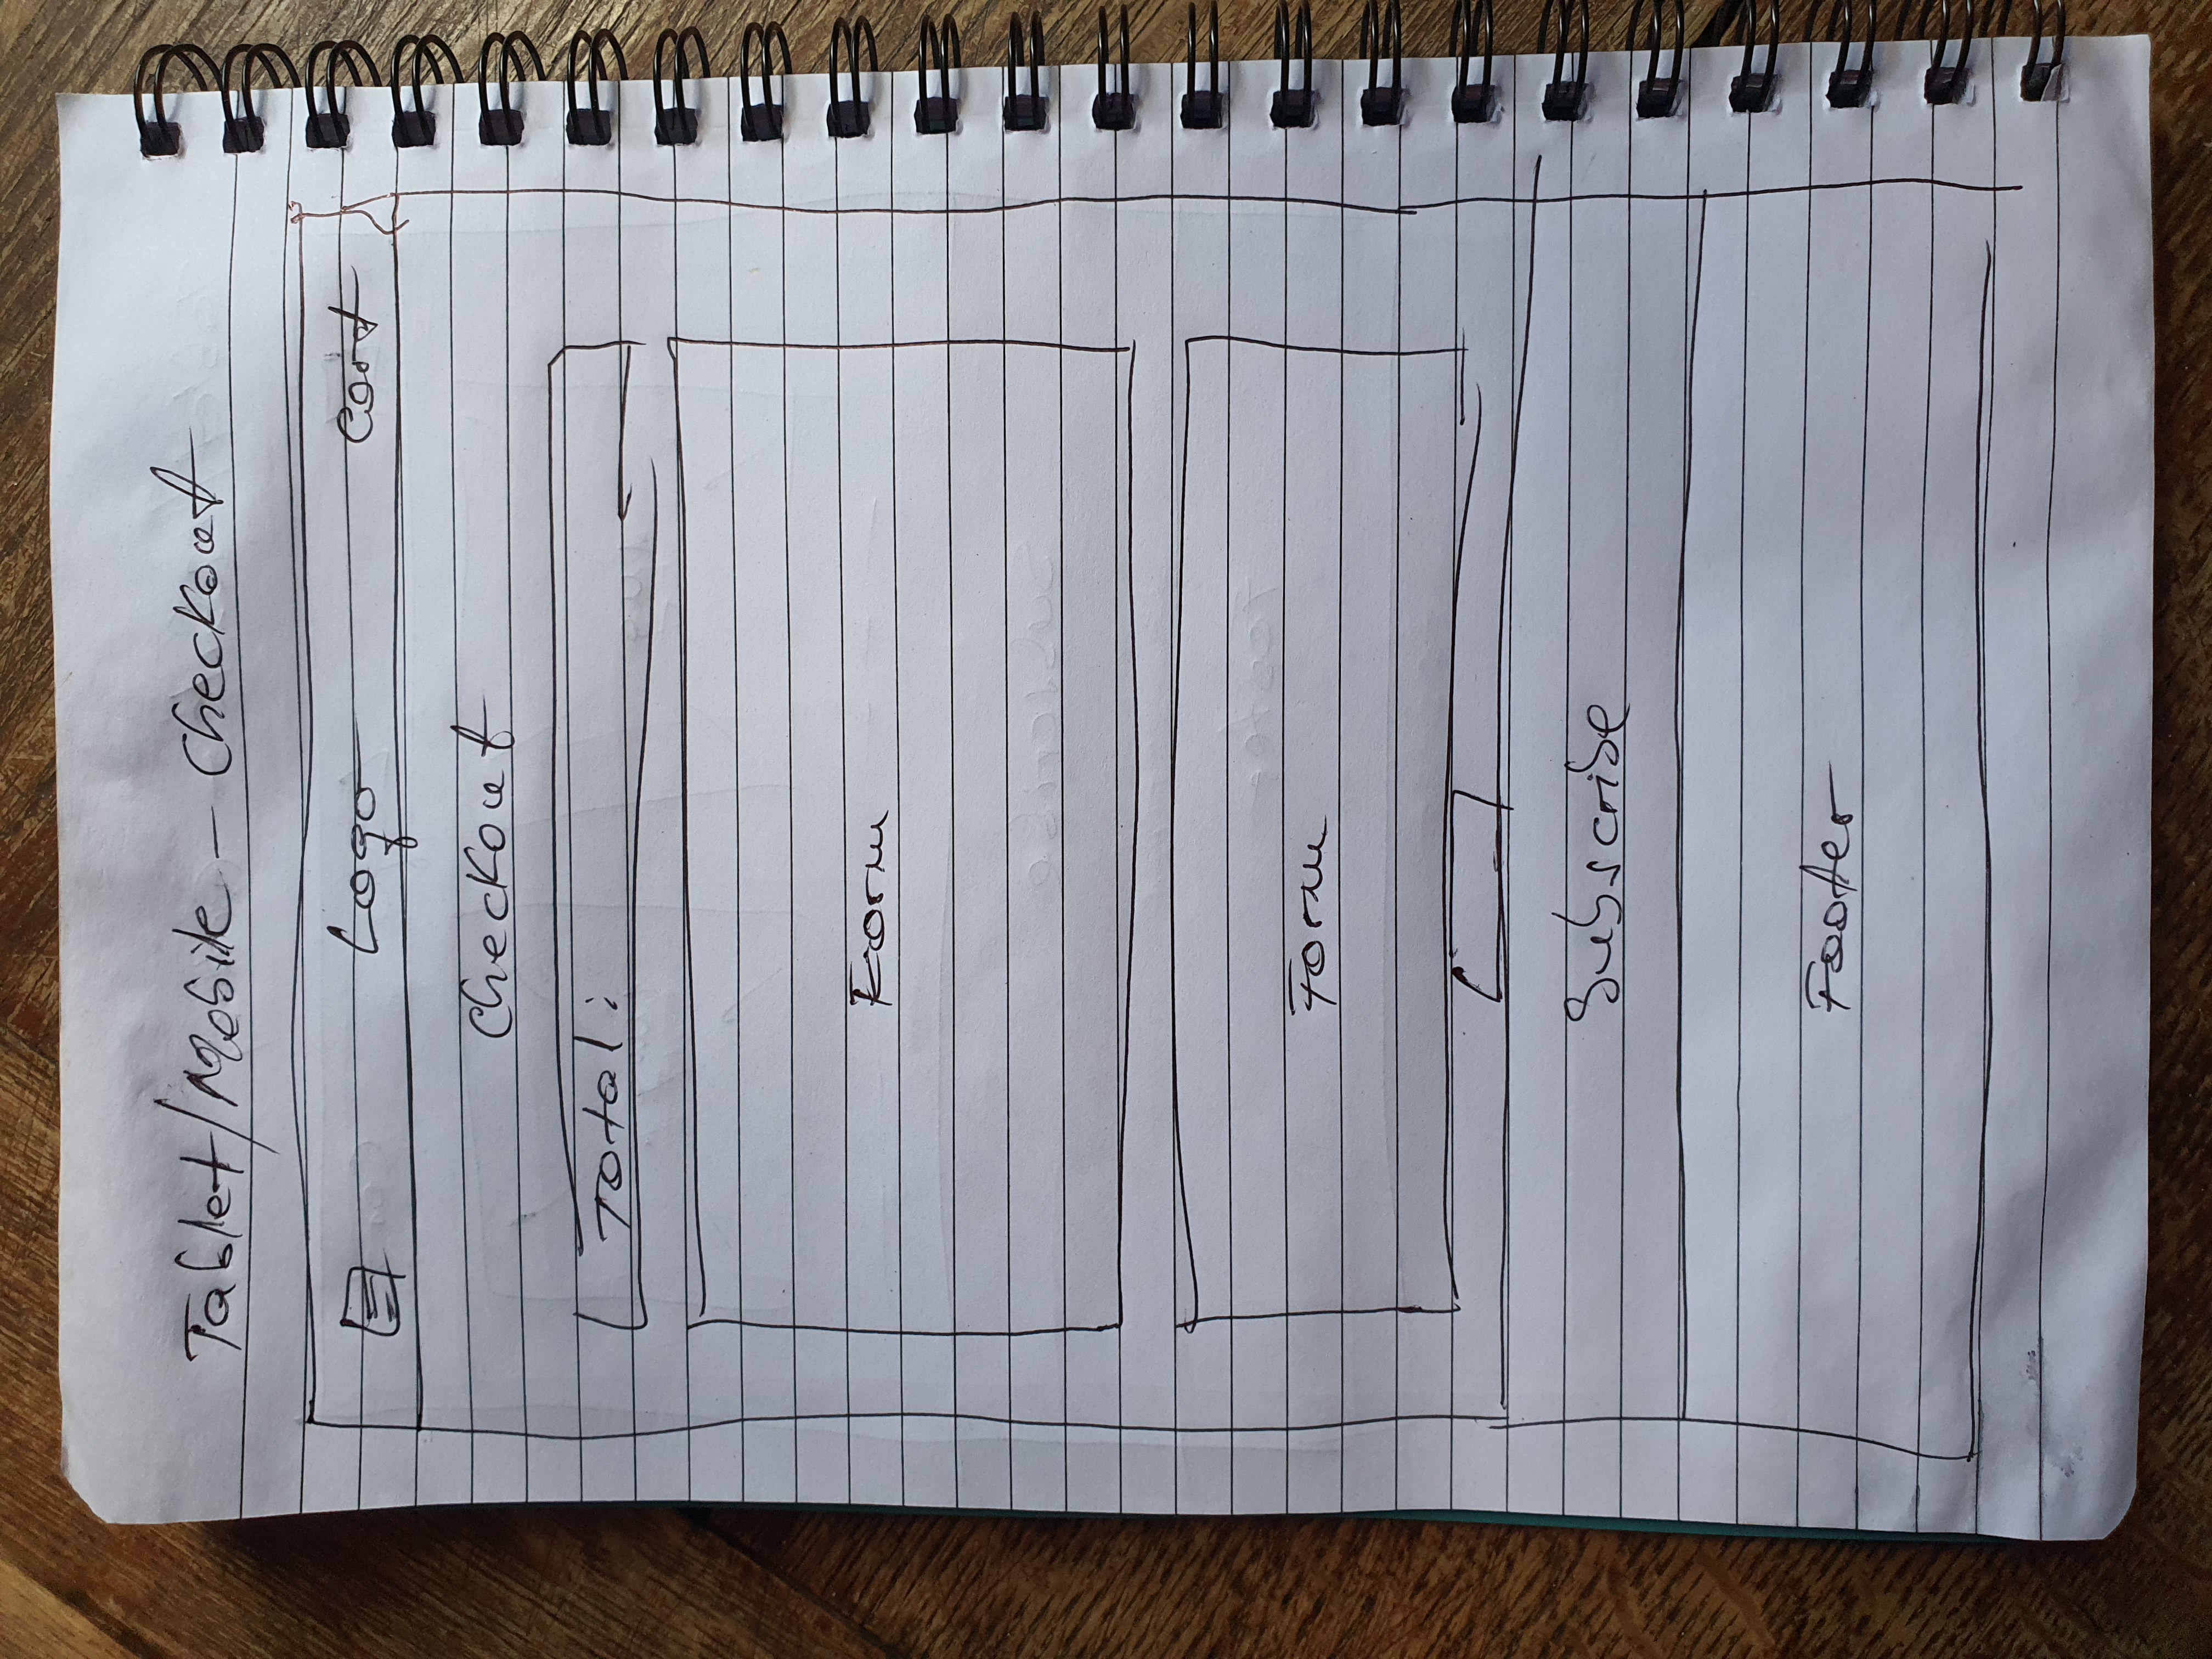 Tablet/Mobile - Checkout
Logo Cart
Checkout
Total:
Form
Form
Subscribe
Footer